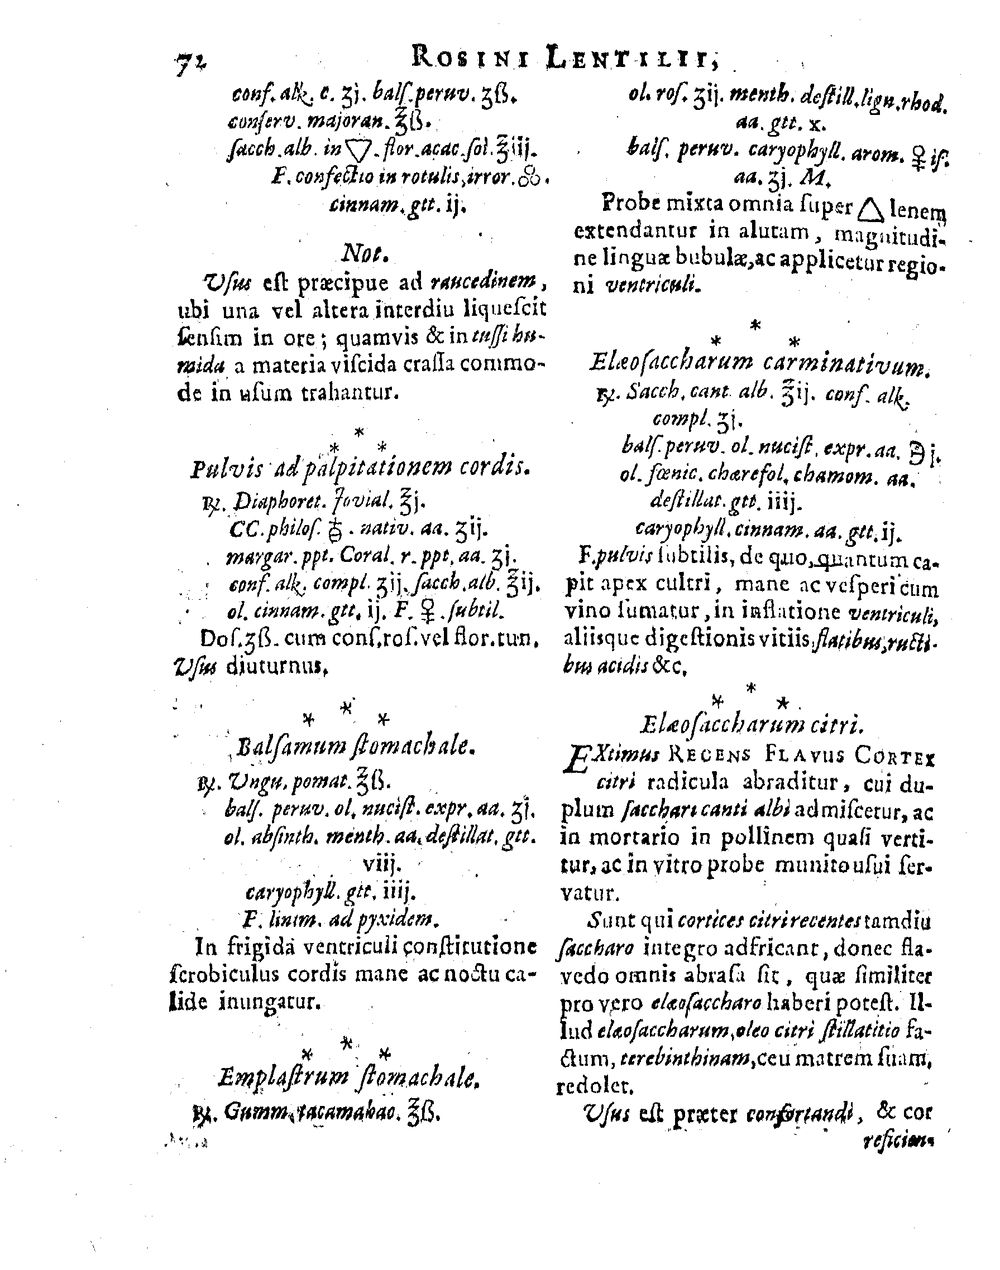 72 ROSINI LENTILII,
conf. alk. c. ʒj. balſ. peruv. ʒß.
conſerv. majoran. ℥ß.
ſacch. alb. in 🜄. flor. acac. ſol. ℥iij.
F. confectio in rotulis, irror.
cinnam. gtt. ij.
Not.
Uſus eſt præcipue ad raucedinem,
ubi una vel altera interdiu liqueſcit
ſenſim in ore; quamvis & in tuſſi hu-
mida a materia viſcida craſſa commo-
de in uſum trahantur.
* * *
Pulvis ad palpitationem cordis.
℞. Diaphoret. Jovial. ℥j.
CC. philoſ. . nativ. aa. ʒij.
margar. ppt. Coral. r. ppt. aa. ʒj.
conf. alk. compl. ʒij. ſacch. alb. ℥ij.
ol. cinnam. gtt. ij. F. ♀. ſubtil.
Doſ. ʒß. cum conſ. roſ. vel flor. tun.
Uſus diuturnus.
* * *
Balſamum ſtomachale.
℞. Ungu. pomat. ℥ß.
balſ. peruv. ol. nuciſt. expr. aa. ʒj.
ol. abſinth. menth. aa. deſtillat. gtt.
viij.
caryophyll. gtt. iiij.
F. linim. ad pyxidem.
In frigida ventriculi conſtitutione
ſcrobiculus cordis mane ac noctu ca-
lide inungatur.
* * *
Emplaſtrum ſtomachale.
℞. Gumm. tacamahac. ℥ß.
ol. roſ. ʒij. menth. deſtill. lign. rhod.
aa. gtt. x.
balſ. peruv. caryophyll. arom. ♀iſ.
aa. ʒj. M.
Probe mixta omnia ſuper 🜂 lenem
extendantur in alutam, magnitudi-
ne linguæ bubulæ, ac applicetur regio-
ni ventriculi.
* * *
Elæoſaccharum carminativum.
℞. Sacch. cant. alb. ℥ij. conf. alk.
compl. ʒj.
balſ. peruv. ol. nuciſt. expr. aa. ℈j.
ol. fœnic. chærefol. chamom. aa.
deſtillat. gtt. iiij.
caryophyll. cinnam. aa. gtt. ij.
F. pulvis ſubtilis, de quo, quantum ca-
pit apex cultri, mane ac veſperi cum
vino ſumatur, in inflatione ventriculi,
aliisque digeſtionis vitiis, flatibus, ructi-
bus acidis &c.
* * *
Elæoſaccharum citri.
EXtimus RECENS FLAVUS CORTEX
citri radicula abraditur, cui du-
plum ſacchari canti albi admiſcetur, ac
in mortario in pollinem quaſi verti-
tur, ac in vitro probe munito uſui ſer-
vatur.
Sunt qui cortices citri recentes tamdiu
ſaccharo integro adfricant, donec fla-
vedo omnis abraſa ſit, quæ ſimiliter
pro vero elæoſaccharo haberi poteſt. Il-
lud elæoſaccharum, oleo citri ſtillatitio fa-
ctum, terebinthinam, ceu matrem ſuam,
redolet.
Uſus eſt præter confortandi, & cor
reficien-